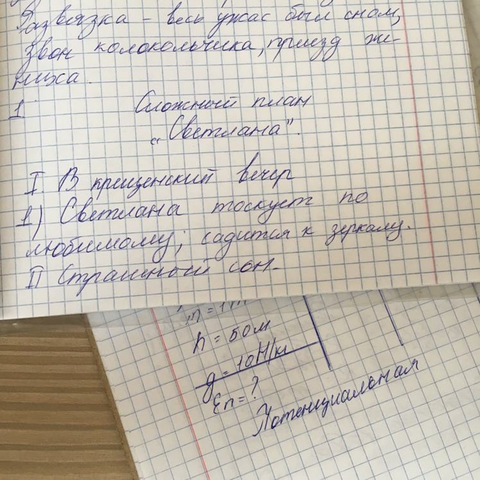 Развязка - весь ужас был сном,
звон колокольчика, приезд же-
ниха.
1
Сложный план
"Светлана".
I. В крещенский вечер
1) Светлана тоскует по
любимому; садится к зеркалу.
II Страшный сон.
h = 50м
g = 10Н/кг
Eп = ?
Потенциальная